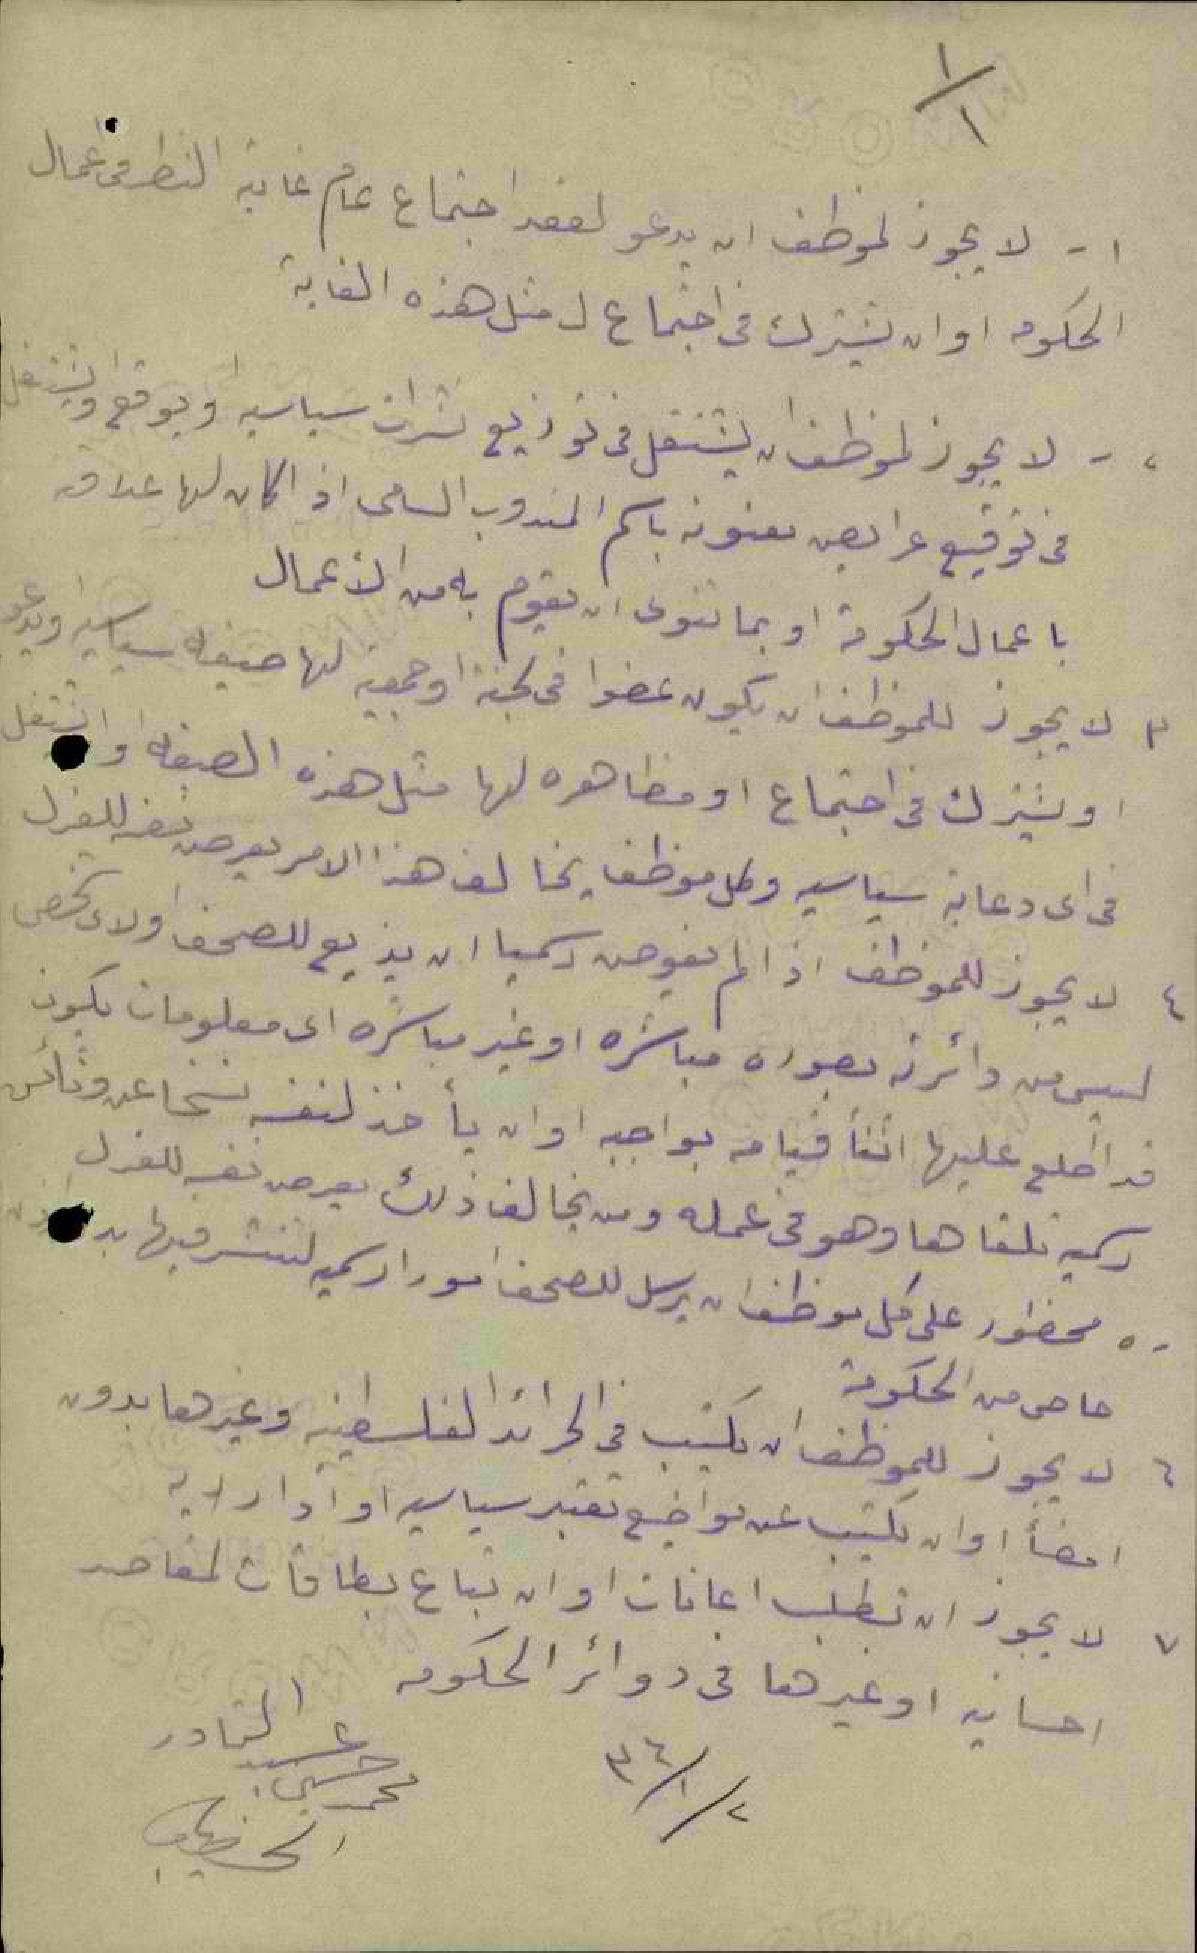 ١/١
١- لا يجوز لموظف ان يدعو لعقد اجتماع عام غايته النظر فى اعمال
الحكومه او ان يشترك فى اجتماع ل مثل هذه الغاية
٢- لا يجوز لموظف ان يشتغل فى توزيع نشرات سياسيه او يوقع او يشتغل
فى توقيع عرايض معنونه باسم المندوب السامى اذا كان لها علاقه
باعمال الحكومة او بما تنوى ان تقوم به من الأعمال
٣ لا يجوز للموظف ان يكون عضوا فى لجنة او جمعية لها صبغه سياسيه او يدعو
او يشترك فى اجتماع او مظاهره لها مثل هذه الصبغه او يشتغل
فى اى دعاية سياسيه وكل موظف يخالف هذا الامر يعرض نفسه للعزل
٤ لا يجوز للموظف اذا لم يفوض رسميا ان يذيع للصحف او لاى شخص
ليس من دائرته بصوره مباشره او غير مباشره اى معلومات يكون
قد اطلع عليها اثنأ قيامه بواجبه او ان يأخذ لنفسه نسخا عن وثائق
رسميه تلقاها وهو فى عمله ومن يخالف ذلك يعرض نفسه للعزل
٥- محظور على كل موظف ان يرسل للصحف امورا رسميه لتنشر فيها
خاص من الحكومة
٦ لا يجوز للموظف ان يكتب فى الجرائد الفلسطينيه وغيرها بدون
امضأ او ان يكتب عن مواضيع تعتبر سياسيه او ادارية
٧ لا يجوز ان تطلب اعانات او ان تباع بطاقات لمقاصد
احسانيه او غيرها فى دوائر الحكومه
٢/١/٣٦
عبد القادر
محمد حسين